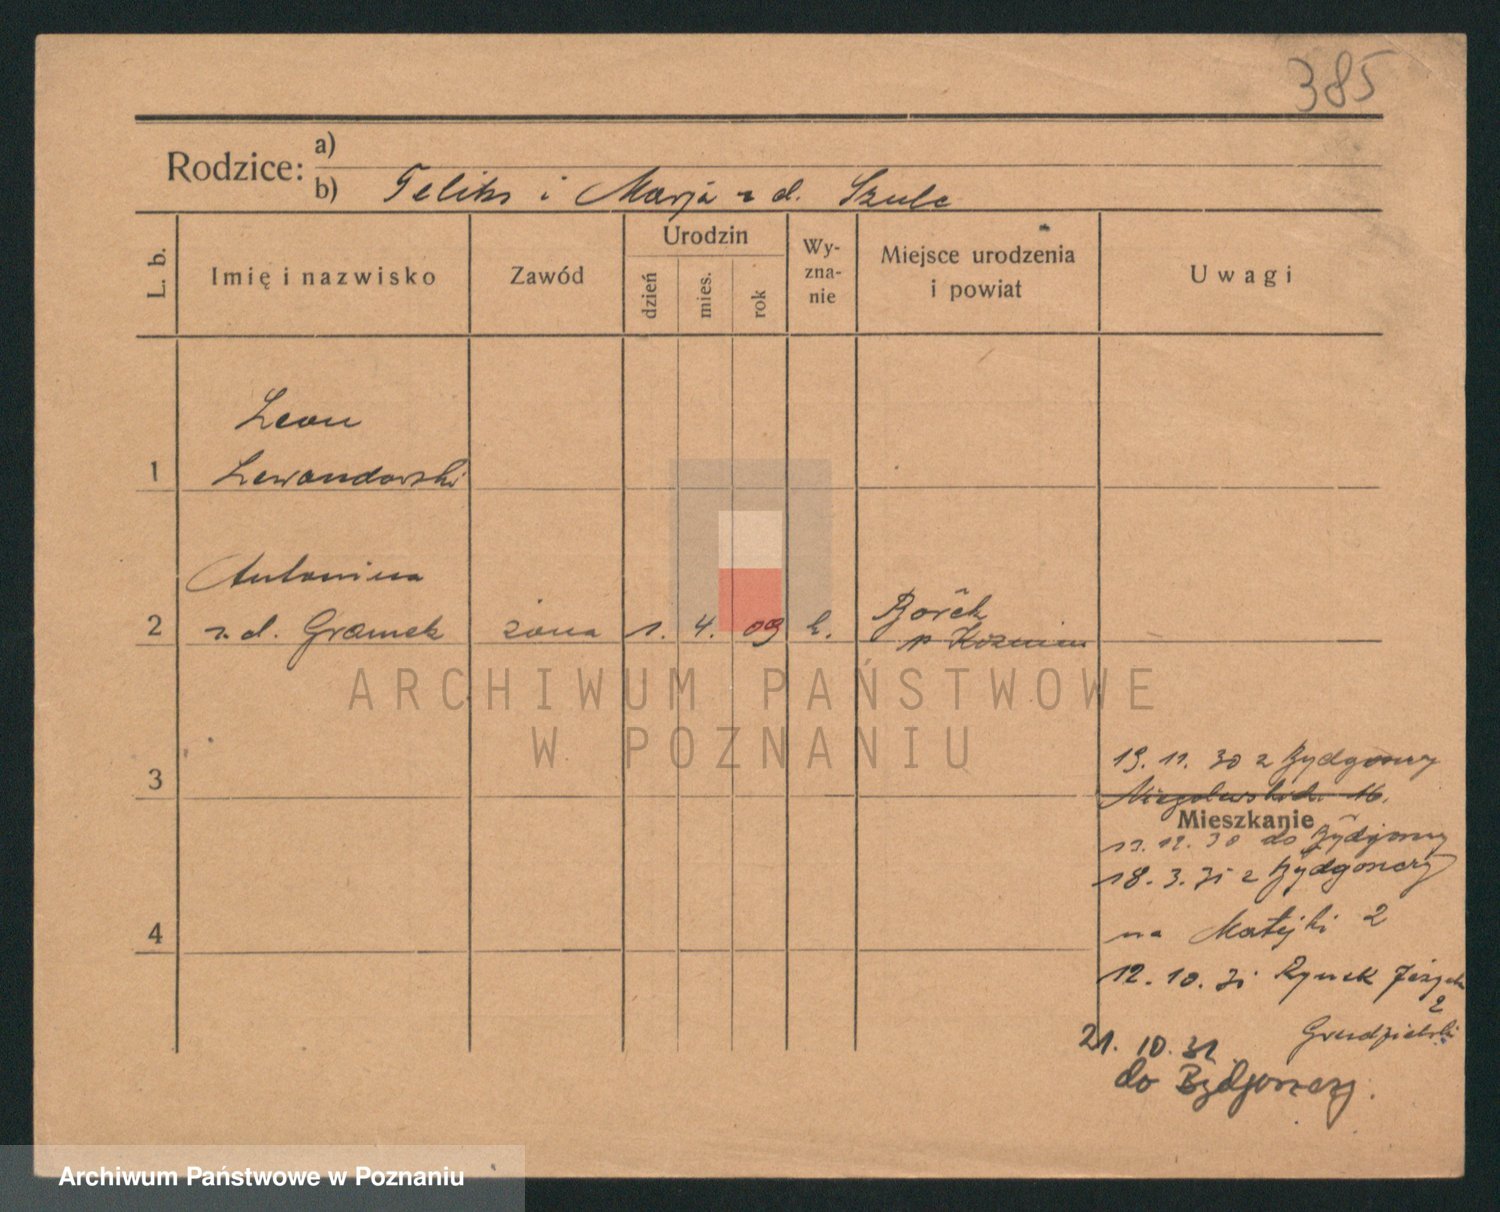 385
Rodzice:
a)
b) Feliks i Marja z d. Szulc
L. b.
Imię i nazwisko
Zawód
Urodzin
dzień
mies.
rok
Wy-
zna-
nie
Miejsce urodzenia
i powiat
Uwagi
Leon
1 Lewandowski
Antonina
2 z. d. Gramek żona 1. 4. 09 k. Borek
p Koźmin
ARCHIWUM PAŃSTWOWE
W POZNANIU
3
19. 11. 30 z Bydgoszczy
Niegolewskich 16.
Mieszkanie
12. 30 do Bydgoszczy
18. 3. 31 z Bydgoszczy
4
na Matejki 2
12. 10. 31 Rynek Jeżycki
2
21. 10. 31
do Bydgoszczy.
Archiwum Państwowe w Poznaniu